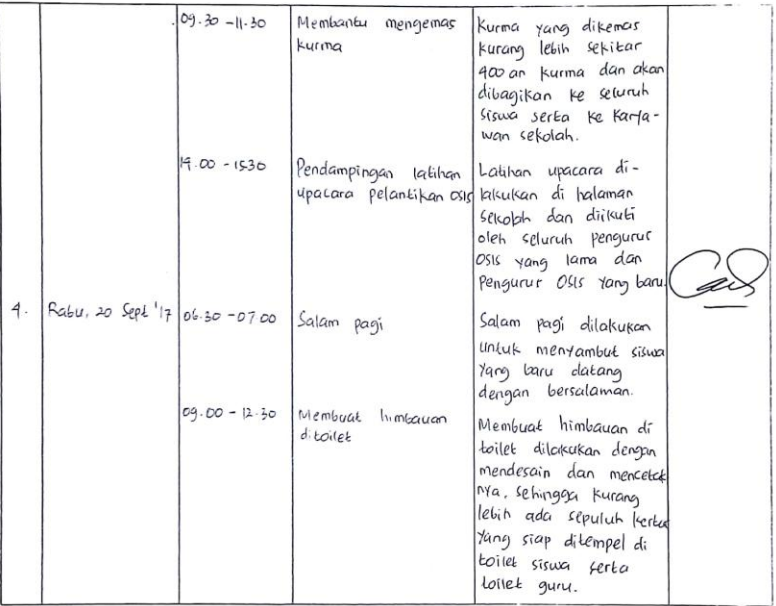 09.30 - 11.30 Membantu mengemas Kurma yang dikemas
kurma kurang lebih sekitar
400 an kurma dan akan
dibagikan ke seluruh
siswa serta ke karya-
wan sekolah.
14.00 - 15.30 Pendampingan latihan Latihan upacara di-
upacara pelantikan OSIS lakukan di halaman
sekolah dan diikuti
oleh seluruh pengurus
OSIS yang lama dan
pengurus OSIS yang baru.
4. Rabu, 20 Sept '17 06.30 - 07.00 Salam pagi Salam pagi dilakukan
untuk menyambut siswa
yang baru datang
dengan bersalaman.
09.00 - 12.30 Membuat himbauan Membuat himbauan di
di toilet toilet dilakukan dengan
mendesain dan mencetak
nya, sehingga kurang
lebih ada sepuluh kertas
yang siap ditempel di
toilet siswa serta
toilet guru.